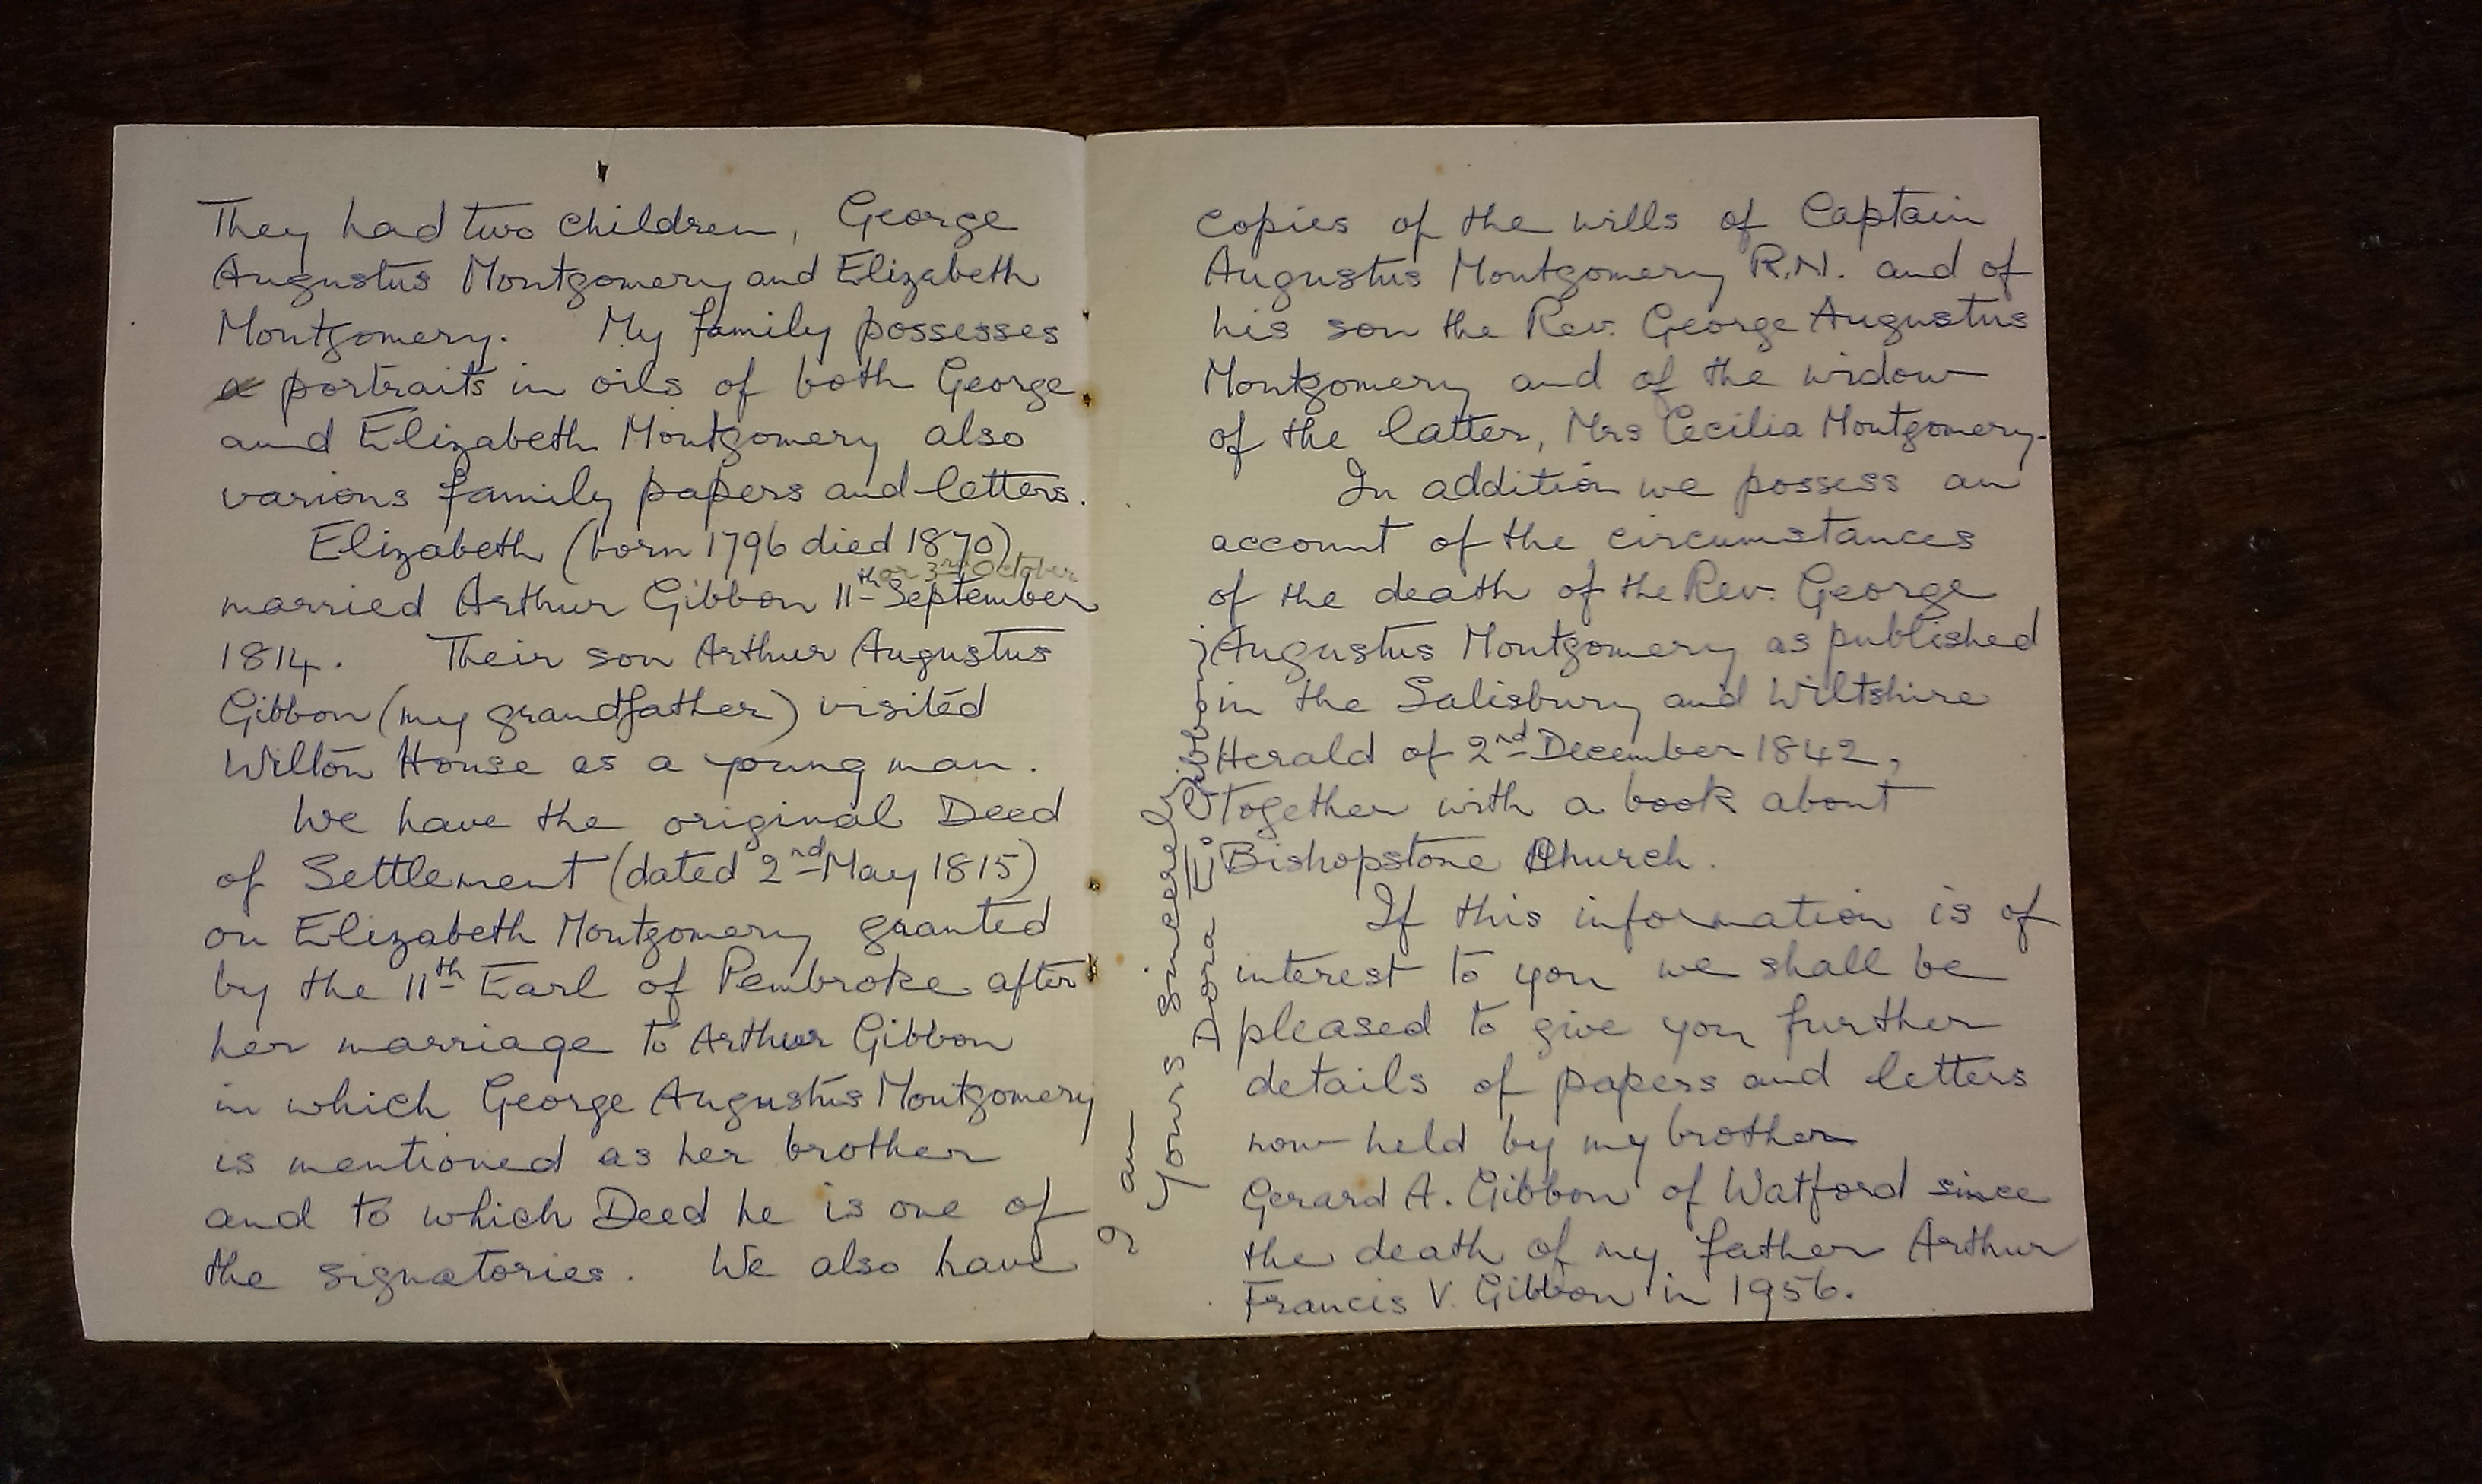 They had two children, George
Augustus Montgomery and Elizabeth
Montgomery. My family possesses
a portraits in oils of both George
and Elizabeth Montgomery also
various family papers and letters.
Elizabeth (born 1796 died 1870)
or 3rd October
married Arthur Gibbon 11th September
1814. Their son Arthur Augustus
Gibbon (my grandfather) visited
Wilton House as a young man.
We have the original Deed
of Settlement (dated 2nd May 1815)
on Elizabeth Montgomery granted
by the 11th Earl of Pembroke after
her marriage to Arthur Gibbon
in which George Augustus Montgomery
is mentioned as her brother
and to which Deed he is one of
the signatories. We also have
copies of the wills of Captain
Augustus Montgomery R.N. and of
his son the Rev. George Augustus
Montgomery and of the widow
of the latter, Mrs Cecilia Montgomery.
In addition we possess an
account of the circumstances
of the death of the Rev. George
Augustus Montgomery as published
in the Salisbury and Wiltshire
Herald of 2nd December 1842,
together with a book about
Bishopstone Church.
If this information is of
interest to you we shall be
pleased to give you further
details of papers and letters
now held by my brother
Gerard A. Gibbon of Watford since
the death of my father Arthur
Francis V. Gibbon in 1956.
I am
Yours sincerely
Dora E. Gibbon